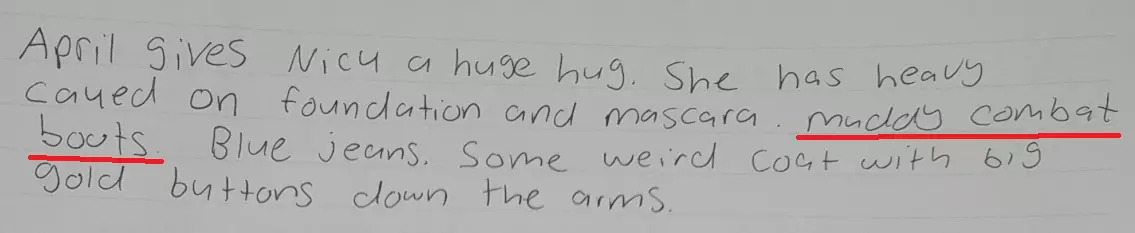 April gives Nicu a huge hug. She has heavy
caued on foundation and mascara. muddy combat
boots. Blue jeans. Some weird coat with big
gold buttons down the arms.